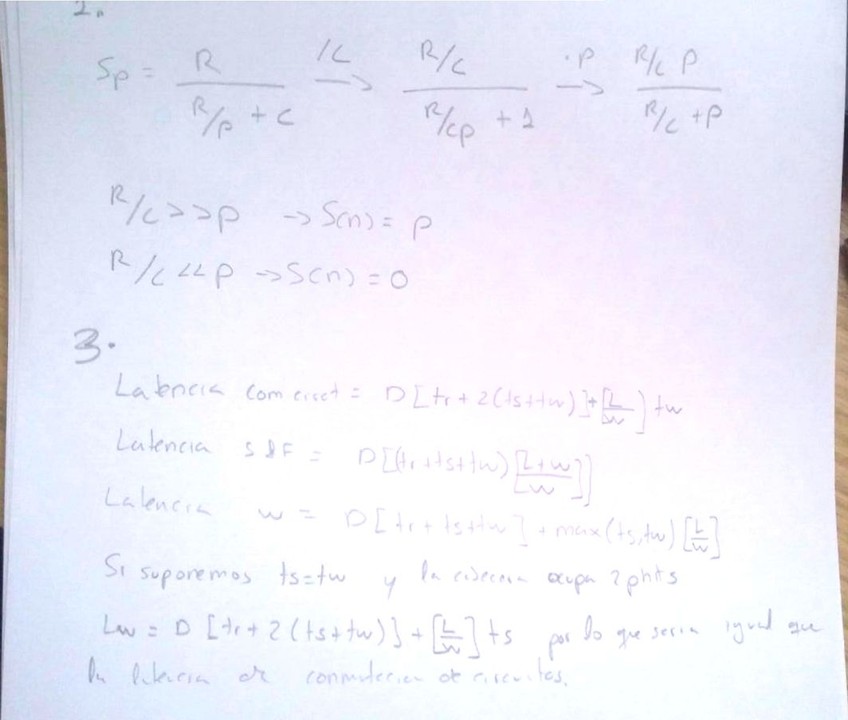 2.
Sp = R / (R/p + C) /C → (R/C) / (R/Cp + 1) ·P → (R/C P) / (R/C + P)
R/C >> P → S(n) = P
R/C << P → S(n) = 0
3.
Latencia com circt = D[tr + 2(ts+tw)] + [L/W] tw
Latencia S&F = D[(tr+ts+tw) [L+W/W]]
Latencia w = D[tr + ts + tw] + max(ts,tw) [L/W]
Si suponemos ts=tw y la cabecera ocupa 2 phits
Lw = D [tr + 2(ts+tw)] + [L/W] ts por lo que seria igual que
la latencia de conmutacion de circuitos.